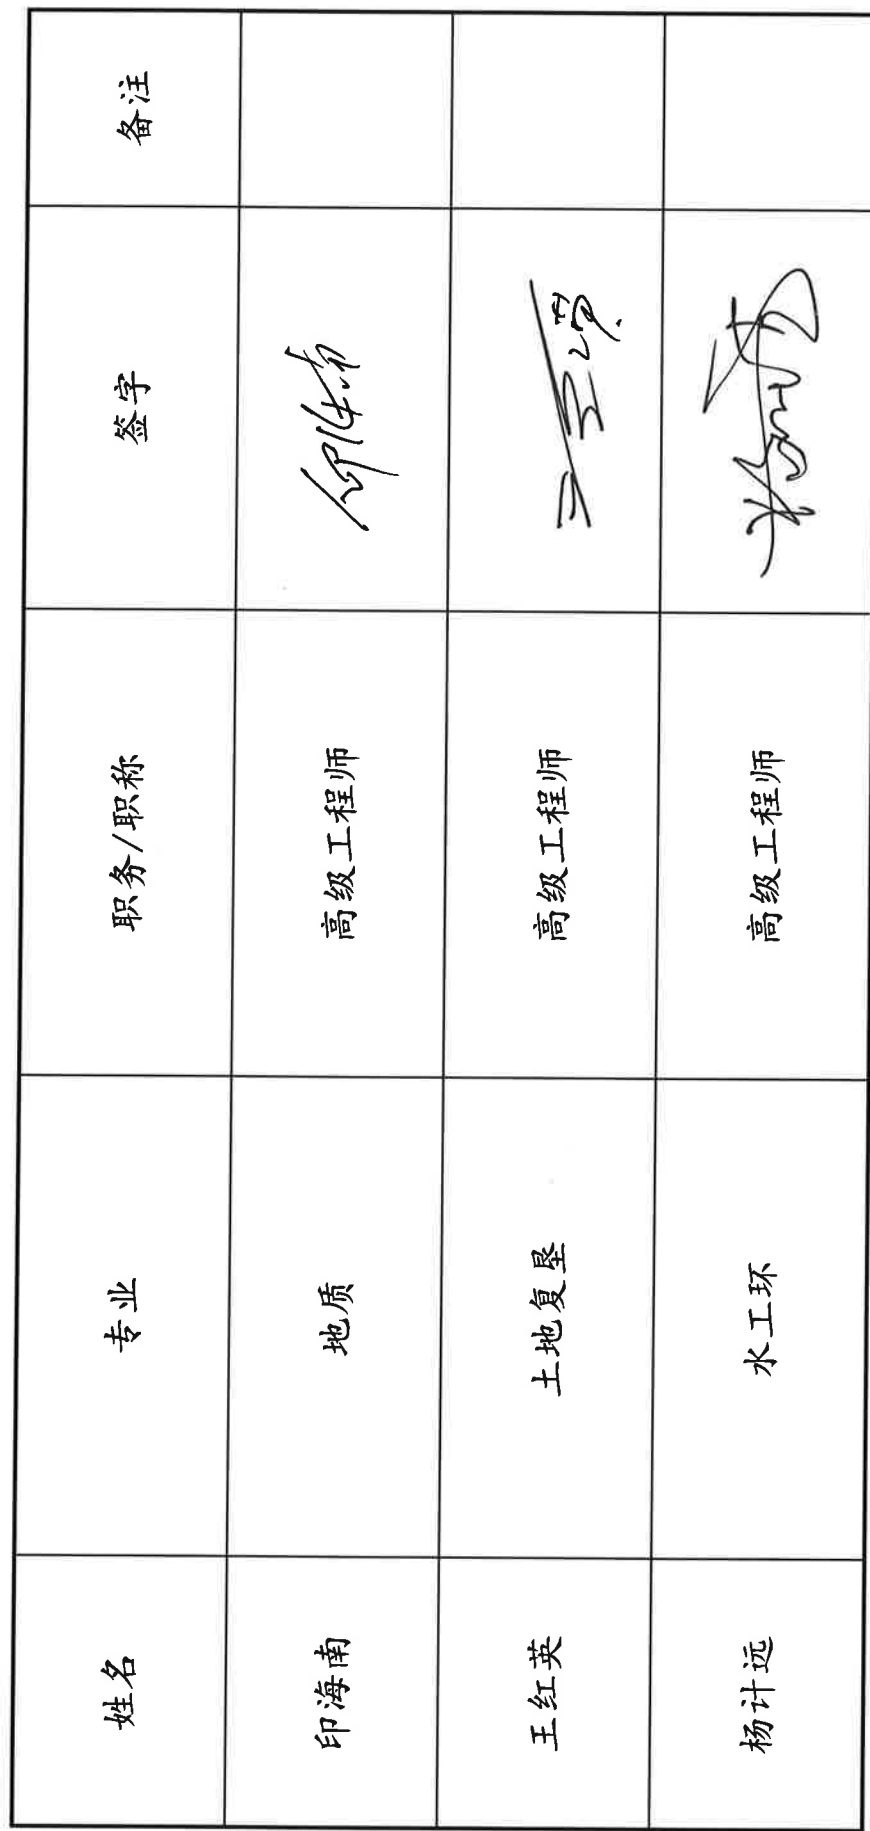 姓名 专业 职务/职称 签字 备注
印海南 地质 高级工程师 印海南
王红英 土地复垦 高级工程师 王红英
杨计远 水工环 高级工程师